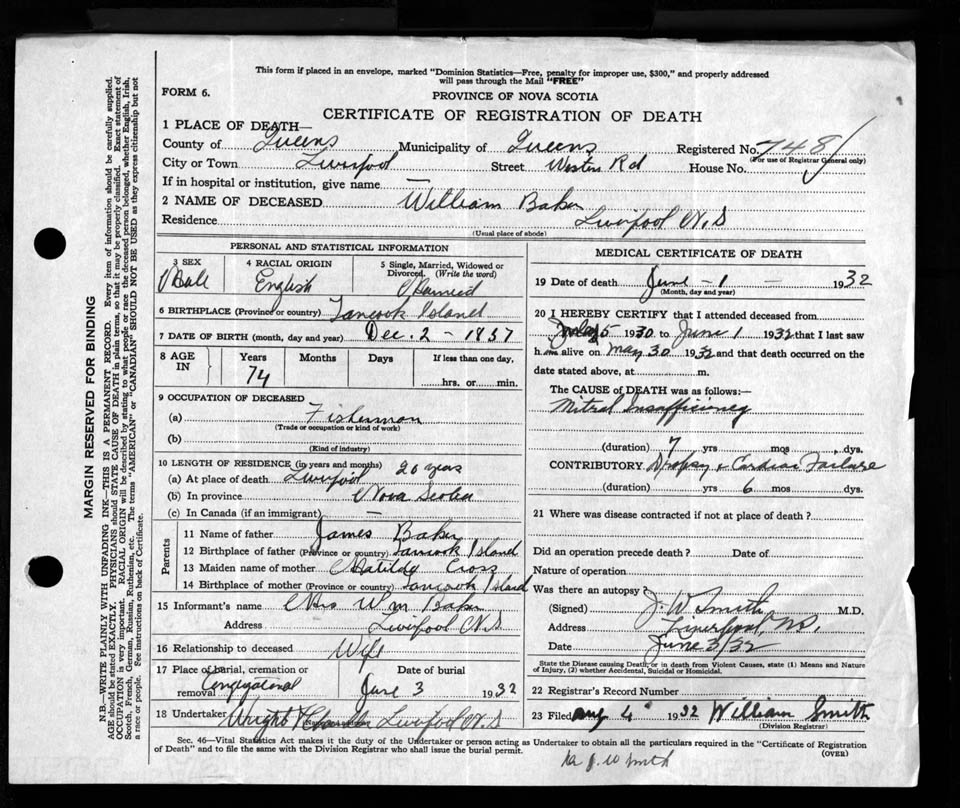 This form if placed in an envelope, marked "Dominion Statistics—Free, penalty for improper use, $300," and properly addressed
will pass through the Mail "FREE"
FORM 6.
PROVINCE OF NOVA SCOTIA
CERTIFICATE OF REGISTRATION OF DEATH
1 PLACE OF DEATH—
County of Queens Municipality of Queens Registered No. 748
(For use of Registrar General only)
City or Town Liverpool Street Western Rd House No.
If in hospital or institution, give name —
2 NAME OF DECEASED William Baker
Residence Liverpool N.S
(Usual place of abode)
PERSONAL AND STATISTICAL INFORMATION
3 SEX
Male
4 RACIAL ORIGIN
English
5 Single, Married, Widowed or
Divorced. (Write the word)
Married
6 BIRTHPLACE (Province or country) Tancook Island
7 DATE OF BIRTH (month, day and year) Dec. 2 - 1857
8 AGE IN
Years Months Days If less than one day,
74
hrs. or min.
9 OCCUPATION OF DECEASED
(a) Fisherman
(Trade or occupation or kind of work)
(b)
(Kind of industry)
10 LENGTH OF RESIDENCE (in years and months) 20 years
(a) At place of death Liverpool
(b) In province Nova Scotia
(c) In Canada (if an immigrant) —
Parents
11 Name of father James Baker
12 Birthplace of father (Province or country) Tancook Island
13 Maiden name of mother Matilda Cross
14 Birthplace of mother (Province or country) Tancook Island
15 Informant's name Mrs Wm Baker
Address Liverpool N.S
16 Relationship to deceased Wife
17 Place of burial, cremation or Date of burial
removal Congregational June 3 1932
18 Undertaker Wright Liverpool N.S
MEDICAL CERTIFICATE OF DEATH
19 Date of death June - 1 - 1932
(Month, day and year)
20 I HEREBY CERTIFY that I attended deceased from
5 1930 to June 1 1932 that I last saw
him alive on May 30 1932 and that death occurred on the
date stated above, at m.
The CAUSE OF DEATH was as follows:—
Mitral Insufficiency
(duration) 7 yrs mos dys.
CONTRIBUTORY. Dropsy & Cardiac Failure
(duration) yrs 6 mos. dys.
21 Where was disease contracted if not at place of death?
Did an operation precede death? Date of
Nature of operation
Was there an autopsy?
(Signed) J. W. Smith M.D.
Address Liverpool, N.S.
Date June 3/32
State the Disease causing Death, or in death from Violent Causes, state (1) Means and Nature
of Injury, (2) whether Accidental, Suicidal or Homicidal.
22 Registrar's Record Number
23 Filed Aug 4 1932 William Smith
(Division Registrar)
Sec. 46—Vital Statistics Act makes it the duty of the Undertaker or person acting as Undertaker to obtain all the particulars required in the "Certificate of Registration
of Death" and to file the same with the Division Registrar who shall issue the burial permit.
(OVER)
J. W Smith
MARGIN RESERVED FOR BINDING
N.B.—WRITE PLAINLY WITH UNFADING INK—THIS IS A PERMANENT RECORD. Every item of information should be carefully supplied.
AGE should be stated EXACTLY. PHYSICIANS should STATE CAUSE OF DEATH in plain terms, so that it may be properly classified. Exact statement of
OCCUPATION is very important. RACIAL ORIGIN will be described by stating to what people or race the deceased person belonged, whether English, Irish,
Scotch, French, German, Russian, Ruthenian, etc. The terms "AMERICAN" or "CANADIAN" SHOULD NOT BE USED as they express citizenship but not
a race or people. See instructions on back of Certificate.